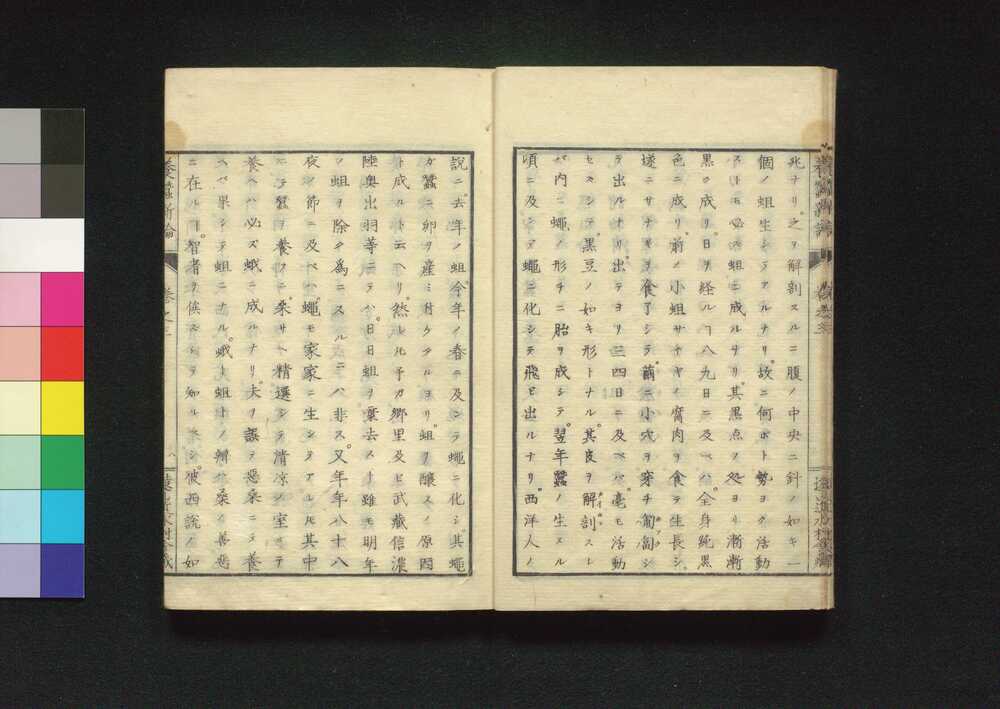 兆ナリ之ヲ解剖スルニ腹ノ中央ニ針ノ如キ一
個ノ蛆生シテアルナリ故ニ何ホト勢ヨク活動
ストモ必ス蛆ニ成ルナリ其黒点ノ処ヨリ漸漸
黒ク成リ日ヲ経ルヿ八九日ニ及ベバ全身純黒
色ニ成リ前ノ小蛆サヤヤイ腐肉ヲ食テ生長シ
遂ニサナギヲ食了シテ繭ニ小穴ヲ穿チ匍匐シ
テ出ルナリ出テヨリ三四日ニ及ベバ毫モ活動
セズシテ黒豆ノ如キ形トナル其皮ヲ解剖スレ
バ内ニ蠅ノ形チニ胎ヲ成シテ翌年蠶ノ生スル
頃ニ及シテ蠅ニ化シテ飛ヒ出ルナリ西洋人ノ
説ニ去年ノ蛆今年ノ春ニ及ンテ蠅ニ化シ其蠅
ガ蠶ニ卵ヲ産ミ付ケタルヨリ蛆ヲ醸スノ原因
ト成ルト云ヘリ然レルニ予カ郷里及ビ武蔵信濃
陸奥出羽等ニテハ日日蛆ヲ棄去スト雖モ明年
ノ蛆ヲ除ク為ニスルニハ非ス又年年八十八
夜ノ節ニ及ベハ蠅モ家家ニ生シタアルルモ其中
ニテ蠶ヲ養フニ桑サヘ精選シテ清凉ノ室ニテ
養ヘハ必ズ蛾ニ成ルナリ夫ヲ誤テ悪桑ニテ養
ヘバ果シテ蛆ニナル蛾ト蛆トノ辨ハ桑ノ善悪
ニ在ルヿ智者ヲ俟ズシテ知ルベシ彼西説ノ如
養蠶新論
巻之二